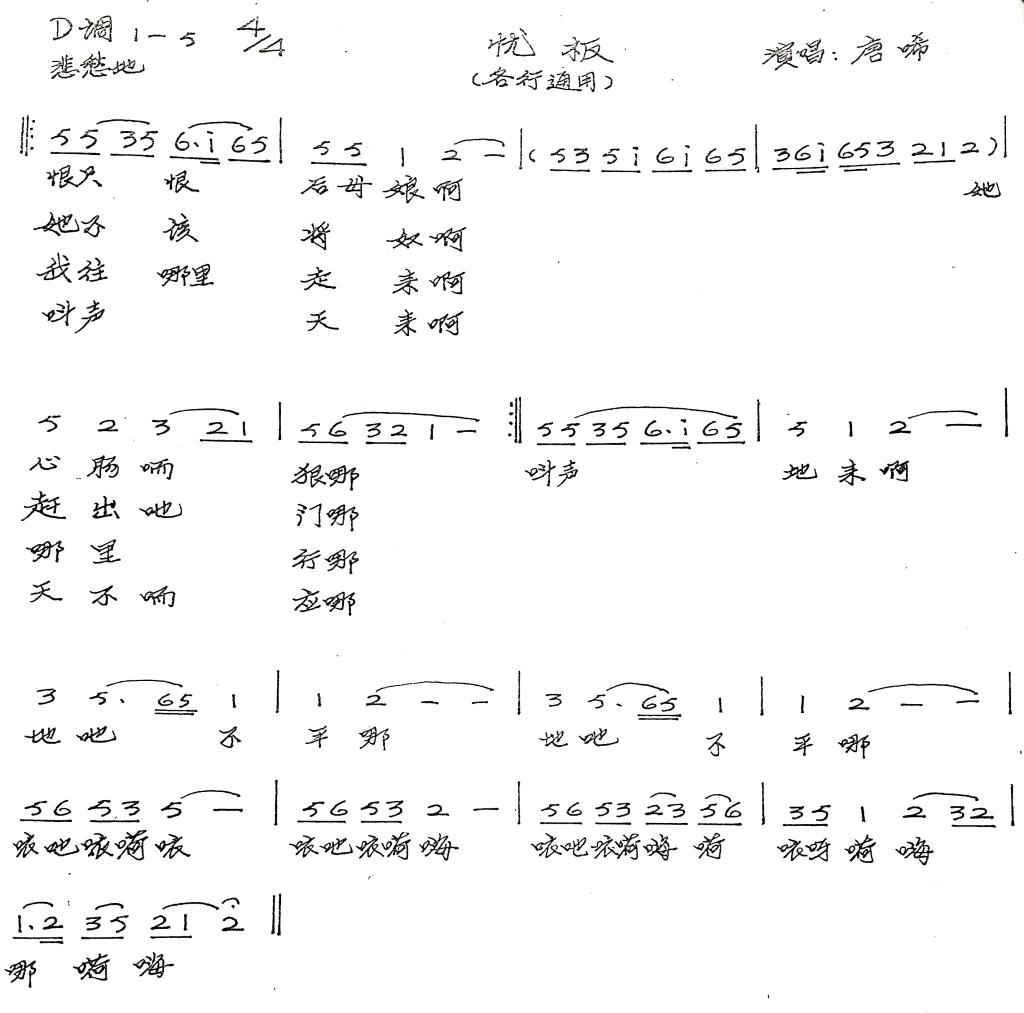 D调 1—5 4/4 忧板 演唱：唐唏
悲愁地 （各行通用）
‖: 55 35 6.i 65 | 55 1 2 — | (53 5i 6i 65 | 36i 653 21 2) |
恨只 恨 后母娘啊 她
她不 该 将 奴啊
我往 哪里 走 来啊
叫声 天 来啊
5 2 3 21 | 56 32 1 — :‖ 55 35 6.i 65 | 5 1 2 — |
心肠 狠哪 叫声 地来啊
赶出吔 门哪
哪里 行哪
天不 应哪
3 5. 65 1 | 1 2 — — | 3 5. 65 1 | 1 2 — — |
地吔 不 平哪 地吔 不 平哪
56 53 5 — | 56 53 2 — | 56 53 23 56 | 35 1 2 32 |
咳吔咳嗬咳 咳吔咳嗬嗨 咳吔咳嗬嗨 嗬 咳呀嗬嗨
1.2 35 21 2 ‖
哪 嗬嗨